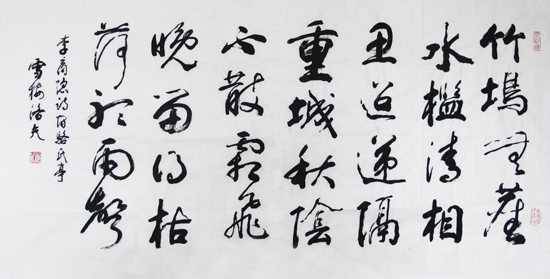 竹塢無塵
水檻清相
思迢遞隔
重城秋陰
不散霜飛
晚留得枯
荷聽雨聲
李商隱詩宿駱氏亭
雪梅